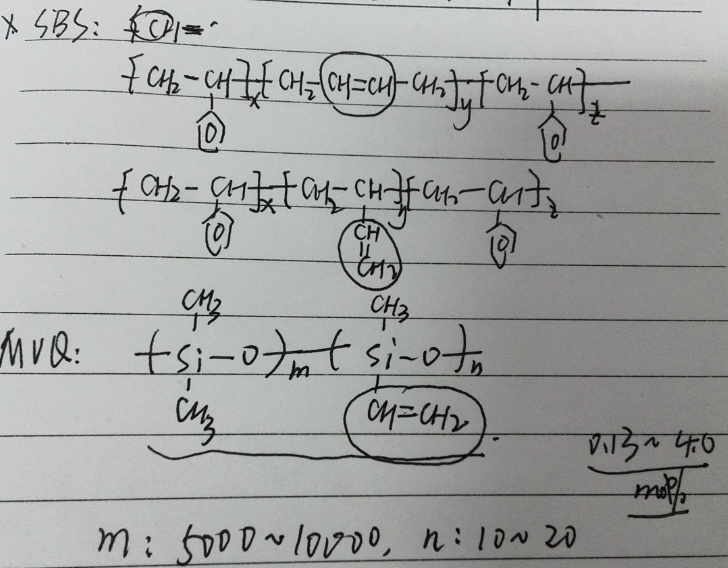 x SBS: [CH=
[CH2-CH]x[CH2 CH=CH-CH2]y[CH2-CH]z
[CH2-CH]x[CH2-CH]y[CH2-CH]z
CH
||
CH2
CH3 CH3
MVQ: (Si-O)m(Si-O)n
CH3 CH=CH2
0.13~4.0
mol%
m: 5000~10000, n: 10~20